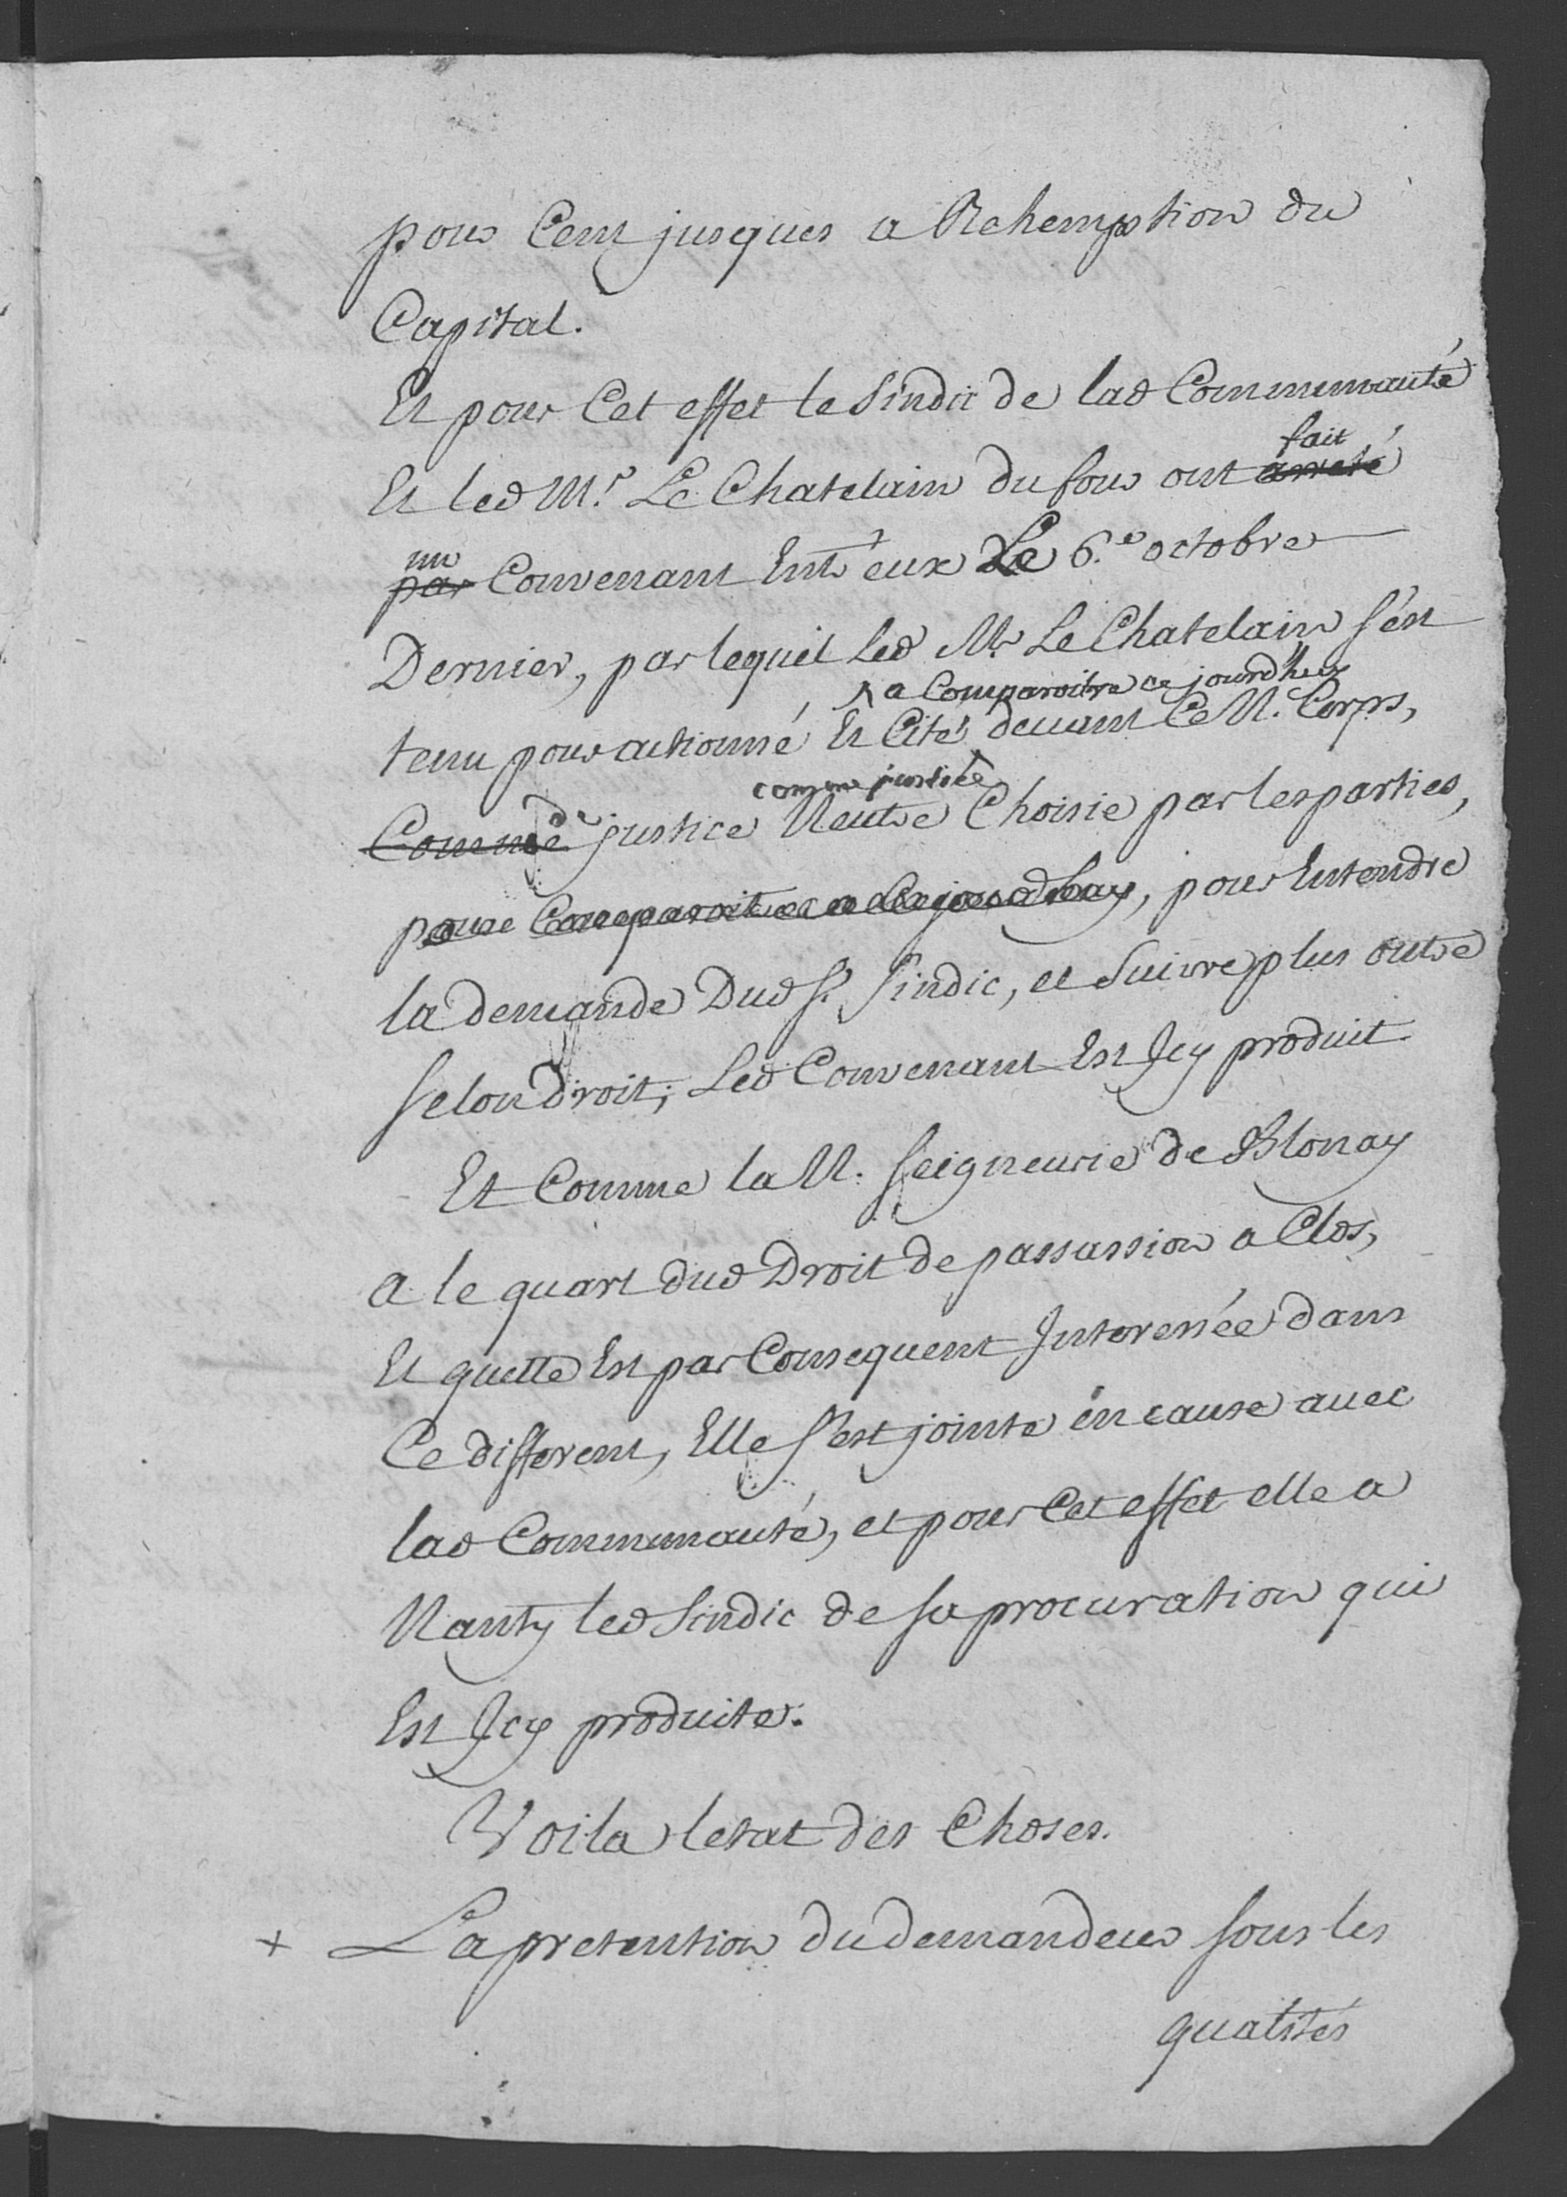 pour Cent jusques a Rehemption du
Capital.
Et pour Cet effet le Sindic de lad Communauté
fait
Et led Mr. Le Chatelain dufour ont arreté
un
par Convenant Entr'eux Le 6.e octobre
Dernier, par lequel Led Mr Le Chatelain s'est
a Comparoitre ce jourd'huy
tenu pour actionné Et Cité devant Ce N. Corps,
comme justice
Comme de justice Neutre Choisie par les parties,
pour Comparoitre a Ce jourdhuy, pour Entendre
la demande Dud Sr. Sindic, et Suivre plus outre
selon droit; Led Convenant Est Jcy produit
Et Comme la N. Seigneurie de Blonay
a le quart dud Droit de passassion a Clos,
Et quelle Est par Consequent Jnteressée dans
Ce different, Elle s'est jointe en cause avec
lad Communauté, et pour Cet effet elle a
Nanty led Sindic de sa procuration qui
Est Jcy produite.
Voila letat des Choses.
+ La pretention du demandeur sous les
qualités